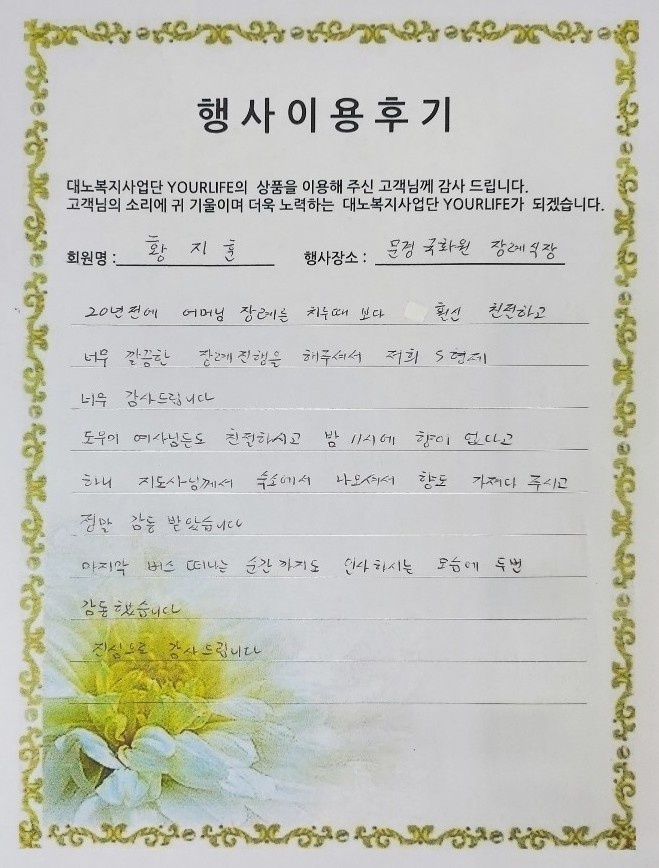 행사이용후기
대노복지사업단 YOURLIFE의 상품을 이용해 주신 고객님께 감사 드립니다.
고객님의 소리에 귀 기울이며 더욱 노력하는 대노복지사업단 YOURLIFE가 되겠습니다.
회원명 : 황지훈 행사장소 : 문경 국화원 장례식장
20년전에 어머님 장례를 치루때 보다 훨신 친절하고
너무 깔끔한 장례진행을 해주셔서 저희 5형제
너무 감사드립니다
도우미 여사님들도 친절하시고 밤 11시에 향이 없다고
하니 지도사님께서 숙소에서 나오셔서 향도 가져다 주시고
정말 감동 받았습니다
마지막 버스 떠나는 순간까지도 인사하시는 모습에 두번
감동했습니다
진심으로 감사드립니다